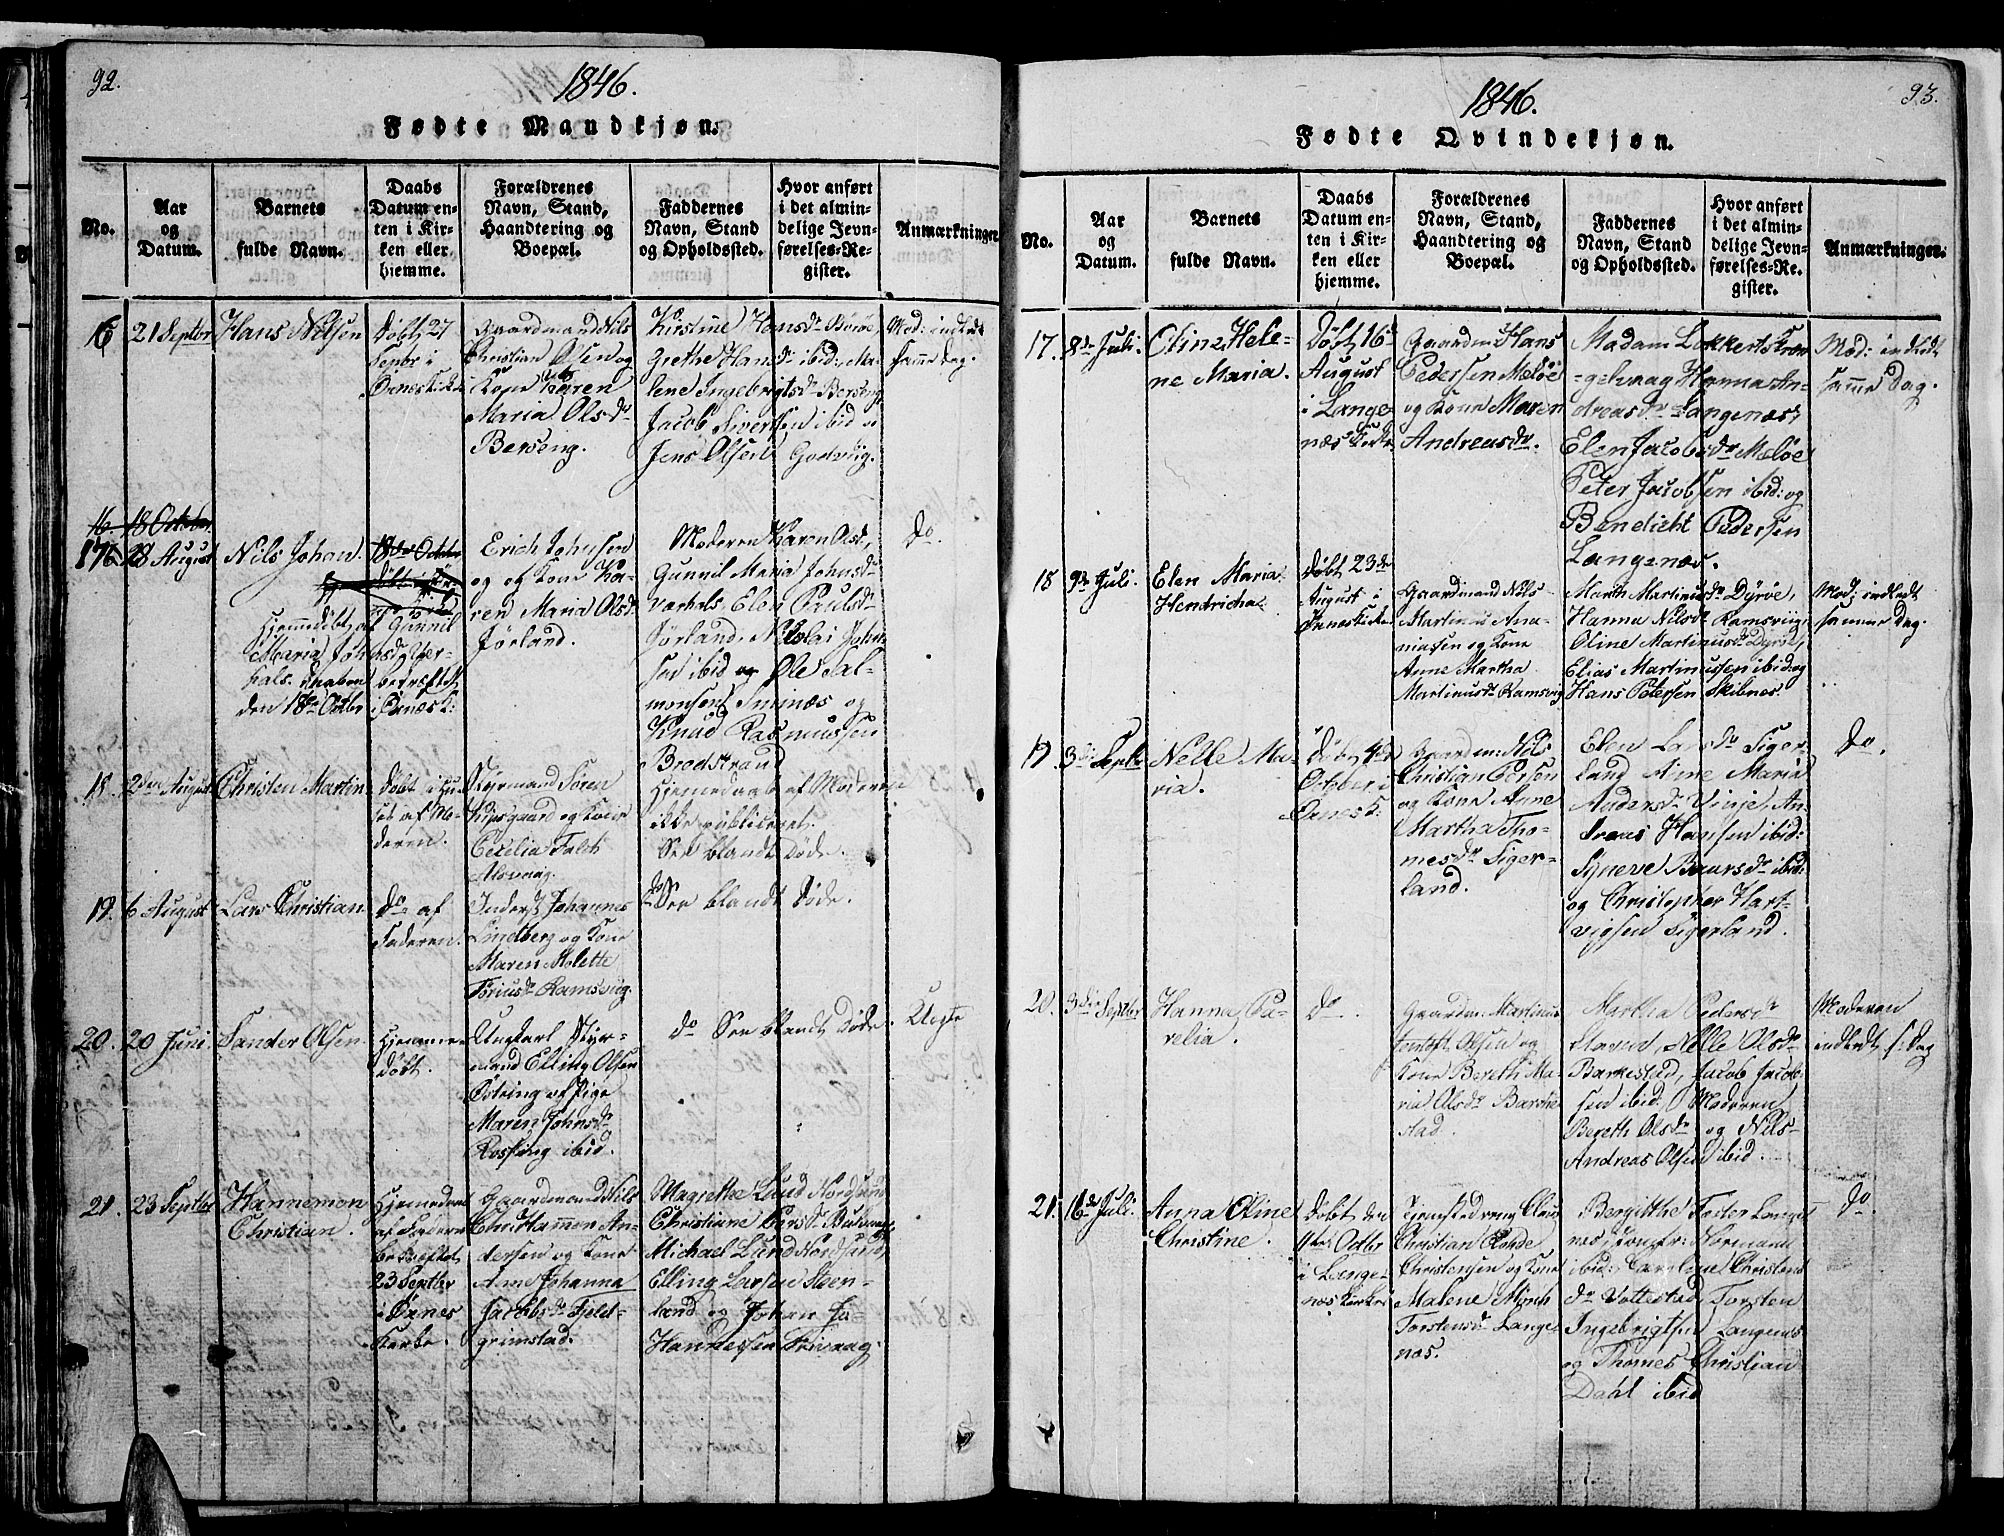 92.
1846.
Fødte Mandkjøn.
No.
Aar
og
Datum.
Barnets
fulde Navn.
Daabs
Datum en-
ten i Kir-
ken eller
hjemme.
Forældrenes
Navn, Stand,
Haandtering og
Boepæl.
Faddernes
Navn, Stand
og Opholdssted.
Hvor anført
i det almin-
delige Jevn-
førelses-Re-
gister.
Anmærkninger
16
21 Septbr
Hans Nilsen
Døbt 27
Septbr i
Ørnes Kirke
Gaardmand Nils
Christian Olsen og
Kone Karen
Maria Olsdr
Berseng.
Kirstine Hansdr Børøe,
Grethe Hansdr ibid: Ma-
lene Ingebrigtsdr Berseng
Jacob Sivertsen ibid og
Jens Olsen Godviig.
Mod: indledt
samme Dag.
16 18 October
17
28 August
Nils Johan.
18de October
Hjemmedøbt af Gunnil
Maria Johnsdr Vær-
hals. Daaben bekræftet
den 18de Octbr i Ørnes K:
Erich Johnsen
og Kone Ka-
ren Maria Olsdr
Jørland.
Moderen Karen Olsdr,
Gunnil Maria Johnsdr
Værhals, Elen Paulsdr
Jørland, Nikolai John-
sen ibid og Ole Sal-
monsen
og
Knud Rasmussen
Brodstrand
do.
18.
2den August
Christen Martin
Døbt i Hu-
set af Mo-
deren.
Styrmand Søren
og Kone
Cecilia Falch
Alsvaag.
Hjemedøbt af Moderen
ikke publiceret.
See blandt Døde.
19.
6 August
Lars Christian
do af
Faderen.
Inderst Johannes
Lindberg og Kone
Maren Molette
Ramsviig.
do See blandt Døde.
20.
20 Juni
Sander Olsen
Hjemme-
døbt.
Ungkarl Styr-
mand Elling Olsen
og Pige
Maren Johnsdr
ibid.
do See blandt Døde.
Uægte
21.
23 Septbr
Hannemon
Christian.
Hjemmedøbt
af Faderen
bekræftet
23 Septbr
i Ørnes
Kirke.
Gaardmand Nils
Chr: Hammon An-
dersen og Kone
Ane Johanna
Jacobsdr Fjeld-
grimstad.
Magrethe Lund Nordsund
Christiane Larsdr
Michael Lund Nordsund,
Elling Larsen Steen-
land og Johan Jo-
Hannessen
93.
1846.
Fødte Qvindekjøn.
No.
Aar
og
Datum.
Barnets
fulde Navn.
Daabs
Datum en-
ten i Kir-
ken eller
hjemme.
Forældrenes
Navn, Stand,
Haandtering og
Boepæl.
Faddernes
Navn, Stand
og Opholdssted.
Hvor anført
i det almin-
delige Jevn-
førelses-Re-
gister.
Anmærkninger.
17.
8de Juli.
Oline Hele-
ne Maria.
Døbt 16de
August
i Lange-
næs Kirke
Gaardm: Hans
Pedersen Meløe
og Kone Maren
Andreasdr.
Madam Lokkert
Hanna An-
dreasdr Langenæs,
Elen Jacobsdr Meløe
Peter Jacobsen ibid: og
Bendicht Pedersen
Langenæs.
Mod: indledt
samme Dag.
18
9de Juli.
Elen Maria
Hendricha
Døbt 23de
August i
Ørnes Kirke
Gaardmand Nils
Martin Ana-
niassen og Kone
Anne Martha
Martinusdr Ramsviig
Marith Martinusdr Dyrøe,
Hanna Nilsdr Ramsviig
Oline Martinusdr Dyrøe,
Elias Martinussen ibid og
Hans Petersen Skibnes
Mod: indledt
samme Dag.
19
3die Septbr
Nelle Ma-
ria.
Døbt 4de
October i
Ørnes K:
Gaardm: Nils
Christian Persen
og Kone Anne
Martha Tho-
mesdr Siger-
land.
Elen Larsdr Siger-
land, Anne Maria
Andersdr Vinje, An-
dreas Hansen ibid:
Synneve Baarsdr ibid:
og Christopher Hart-
vigsen Sigerland.
do.
20.
3die Septbr
Hanna Pe-
relia.
do.
Gaardm: Martinus
Olsen og
Kone Bereth Ma-
ria Olsdr Barke-
stad.
Martha Pedersdr
Staven, Nelle Olsdr
Barkestad, Jacob Jacob-
sen ibid. Moderen
Bereth Olsdr og Nils
Andreas Olsen ibid.
Moderen
indledt s: Dag
21.
16de Juli.
Anna Oline
Christine.
Døbt den
11te Octbr
i Lange-
næs Kirke
Claus
Christian
Christensen og Kone
Malene Münch
Torstensdr Lange-
næs.
Bergitthe Foster Lange-
næs, Jomfr: Normann
ibid: Carolene Christens-
dr Vottestad, Torsten
Ingebrigtsen Langenæs
og Thomes Christian
Dahl ibid
do.